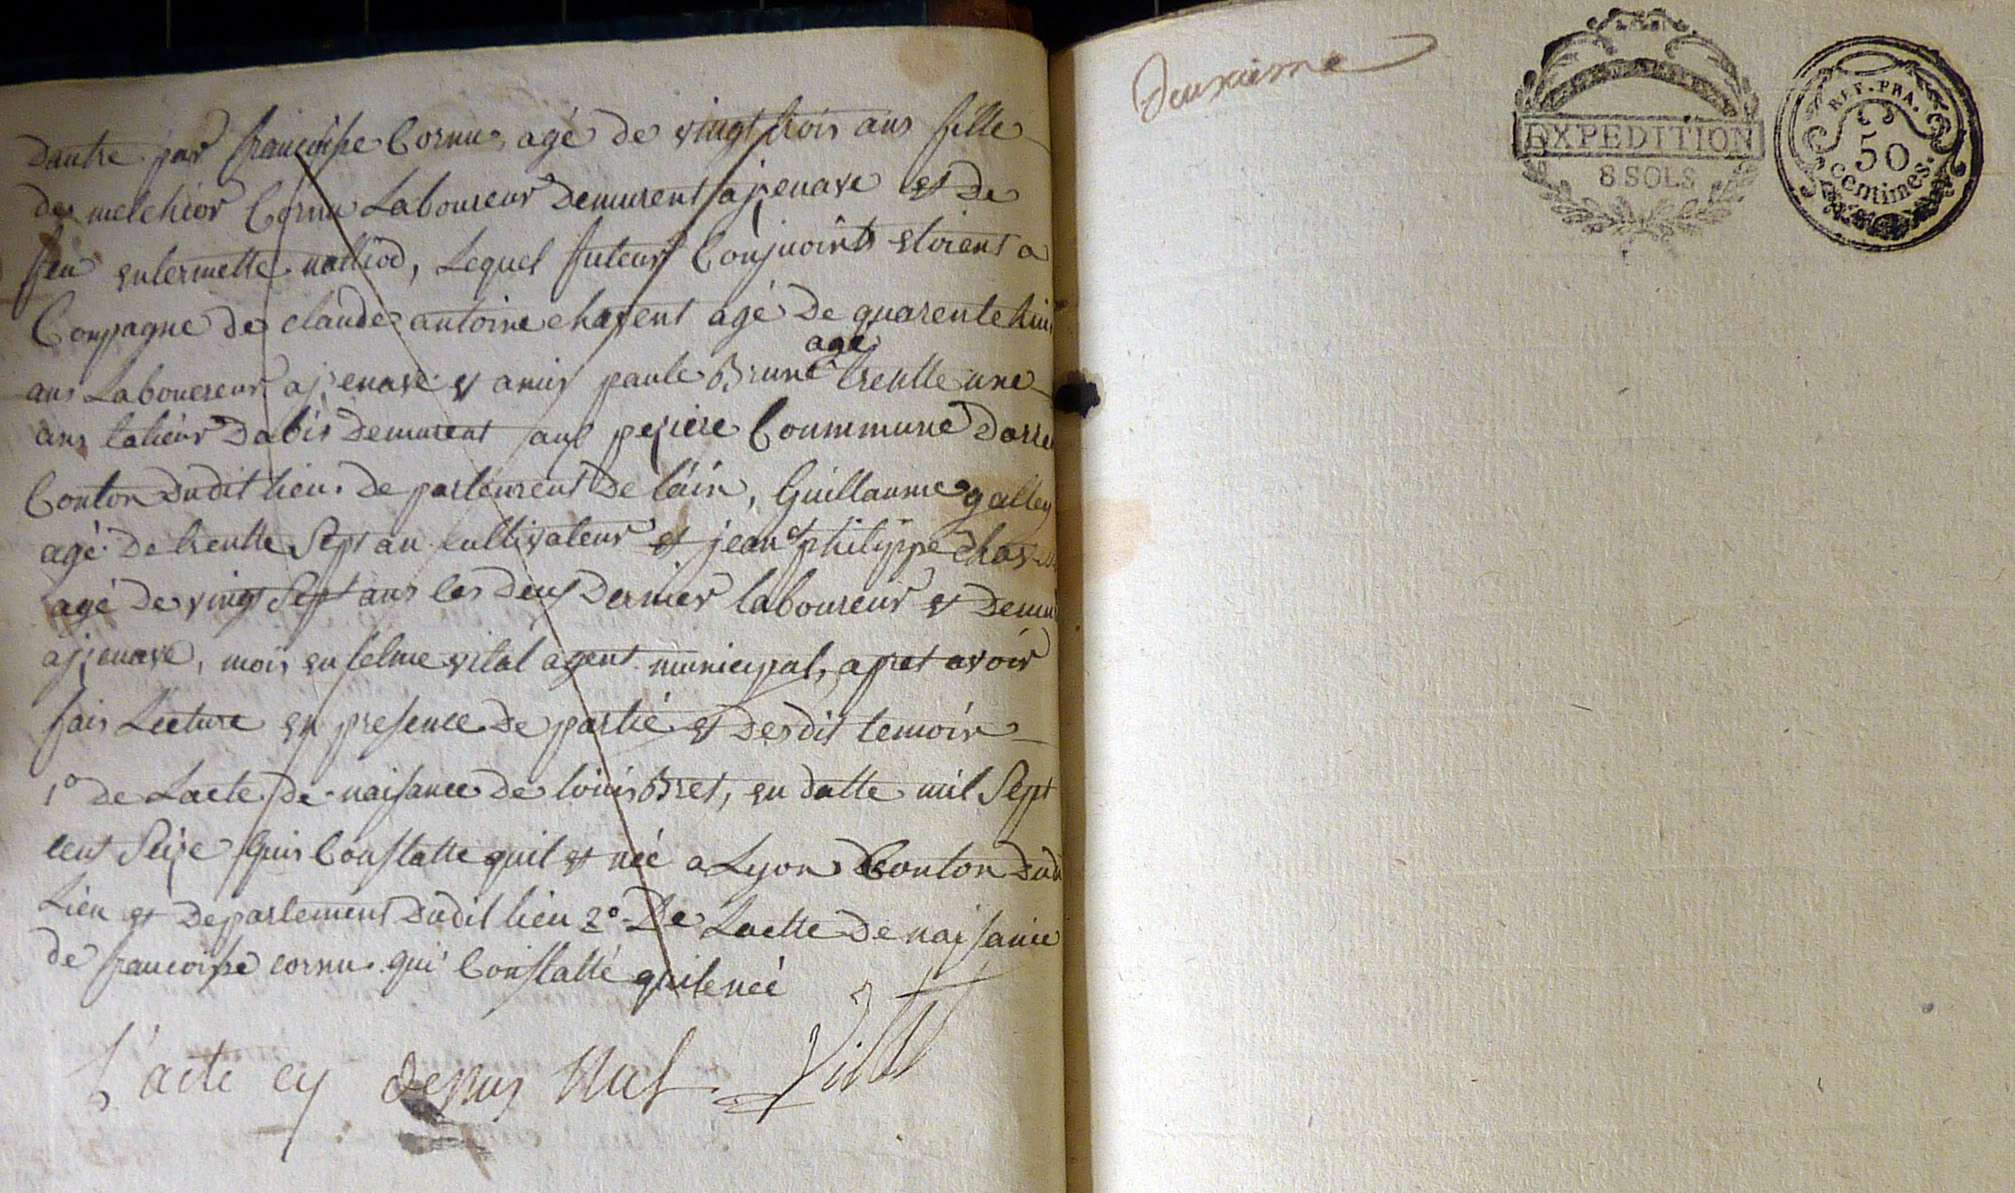 dautre par françoise Cornu, agé de vingt trois ans fille
de melchior Cornu Laboureur Demurent a jzenave et de
feu enlermette nalliod, Lequel futeurs Conjuoints etoient a
Compagne de claude antoine chavent agé De quarente huit
ans Labouereur a jzenave et amis paule Brune agé trentte une
ans talieur Dabis Demurent aux peziere Coummune
Conton dudit lieu. de parteurent De láin, Guillaume galley
agé De trentte Sept an cultivateur et jean philippe
agé De vingt Sept ans les deux Dernier laboureur et
a jzenave, mois enselme vital agent municipal, apret avoir
fais Lecture en presence De partié et desdit temoin
1º De Lacte De naisance De loüis Bret, en datte mil Sept
cent Seize quis Constatte quil et néé a Lyon Conton dudi
Lieu et departement dudit lieu 2º De Lactte De naisance
De françoise cornu qui Constatté quilenéé
L'acte cy Desus Nul Vital
Deuxieme
EXPEDITION
8 SOLS
REP. FRA.
50
centimes.